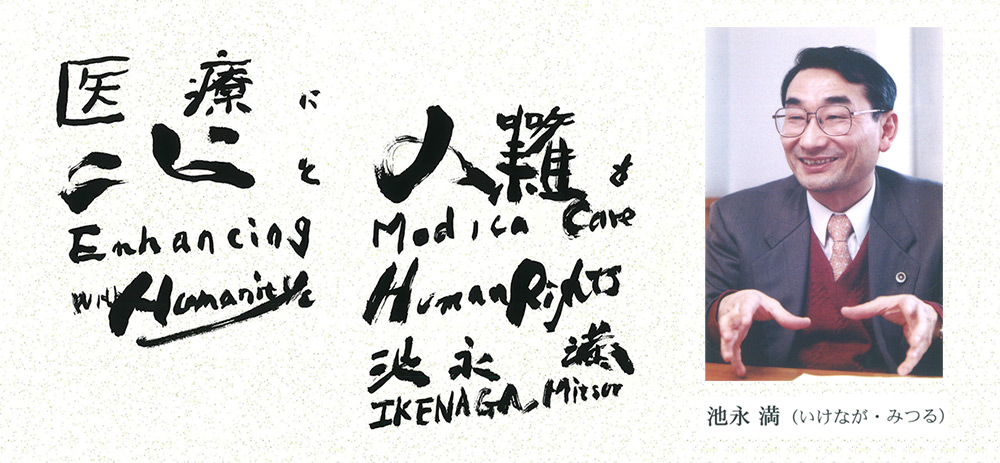 医療に
心と 人権を
Enhancing Medica Care
with Humanity & Human Rights
池永 満
IKENAGA Mitsur
池永 満（いけなが・みつる）